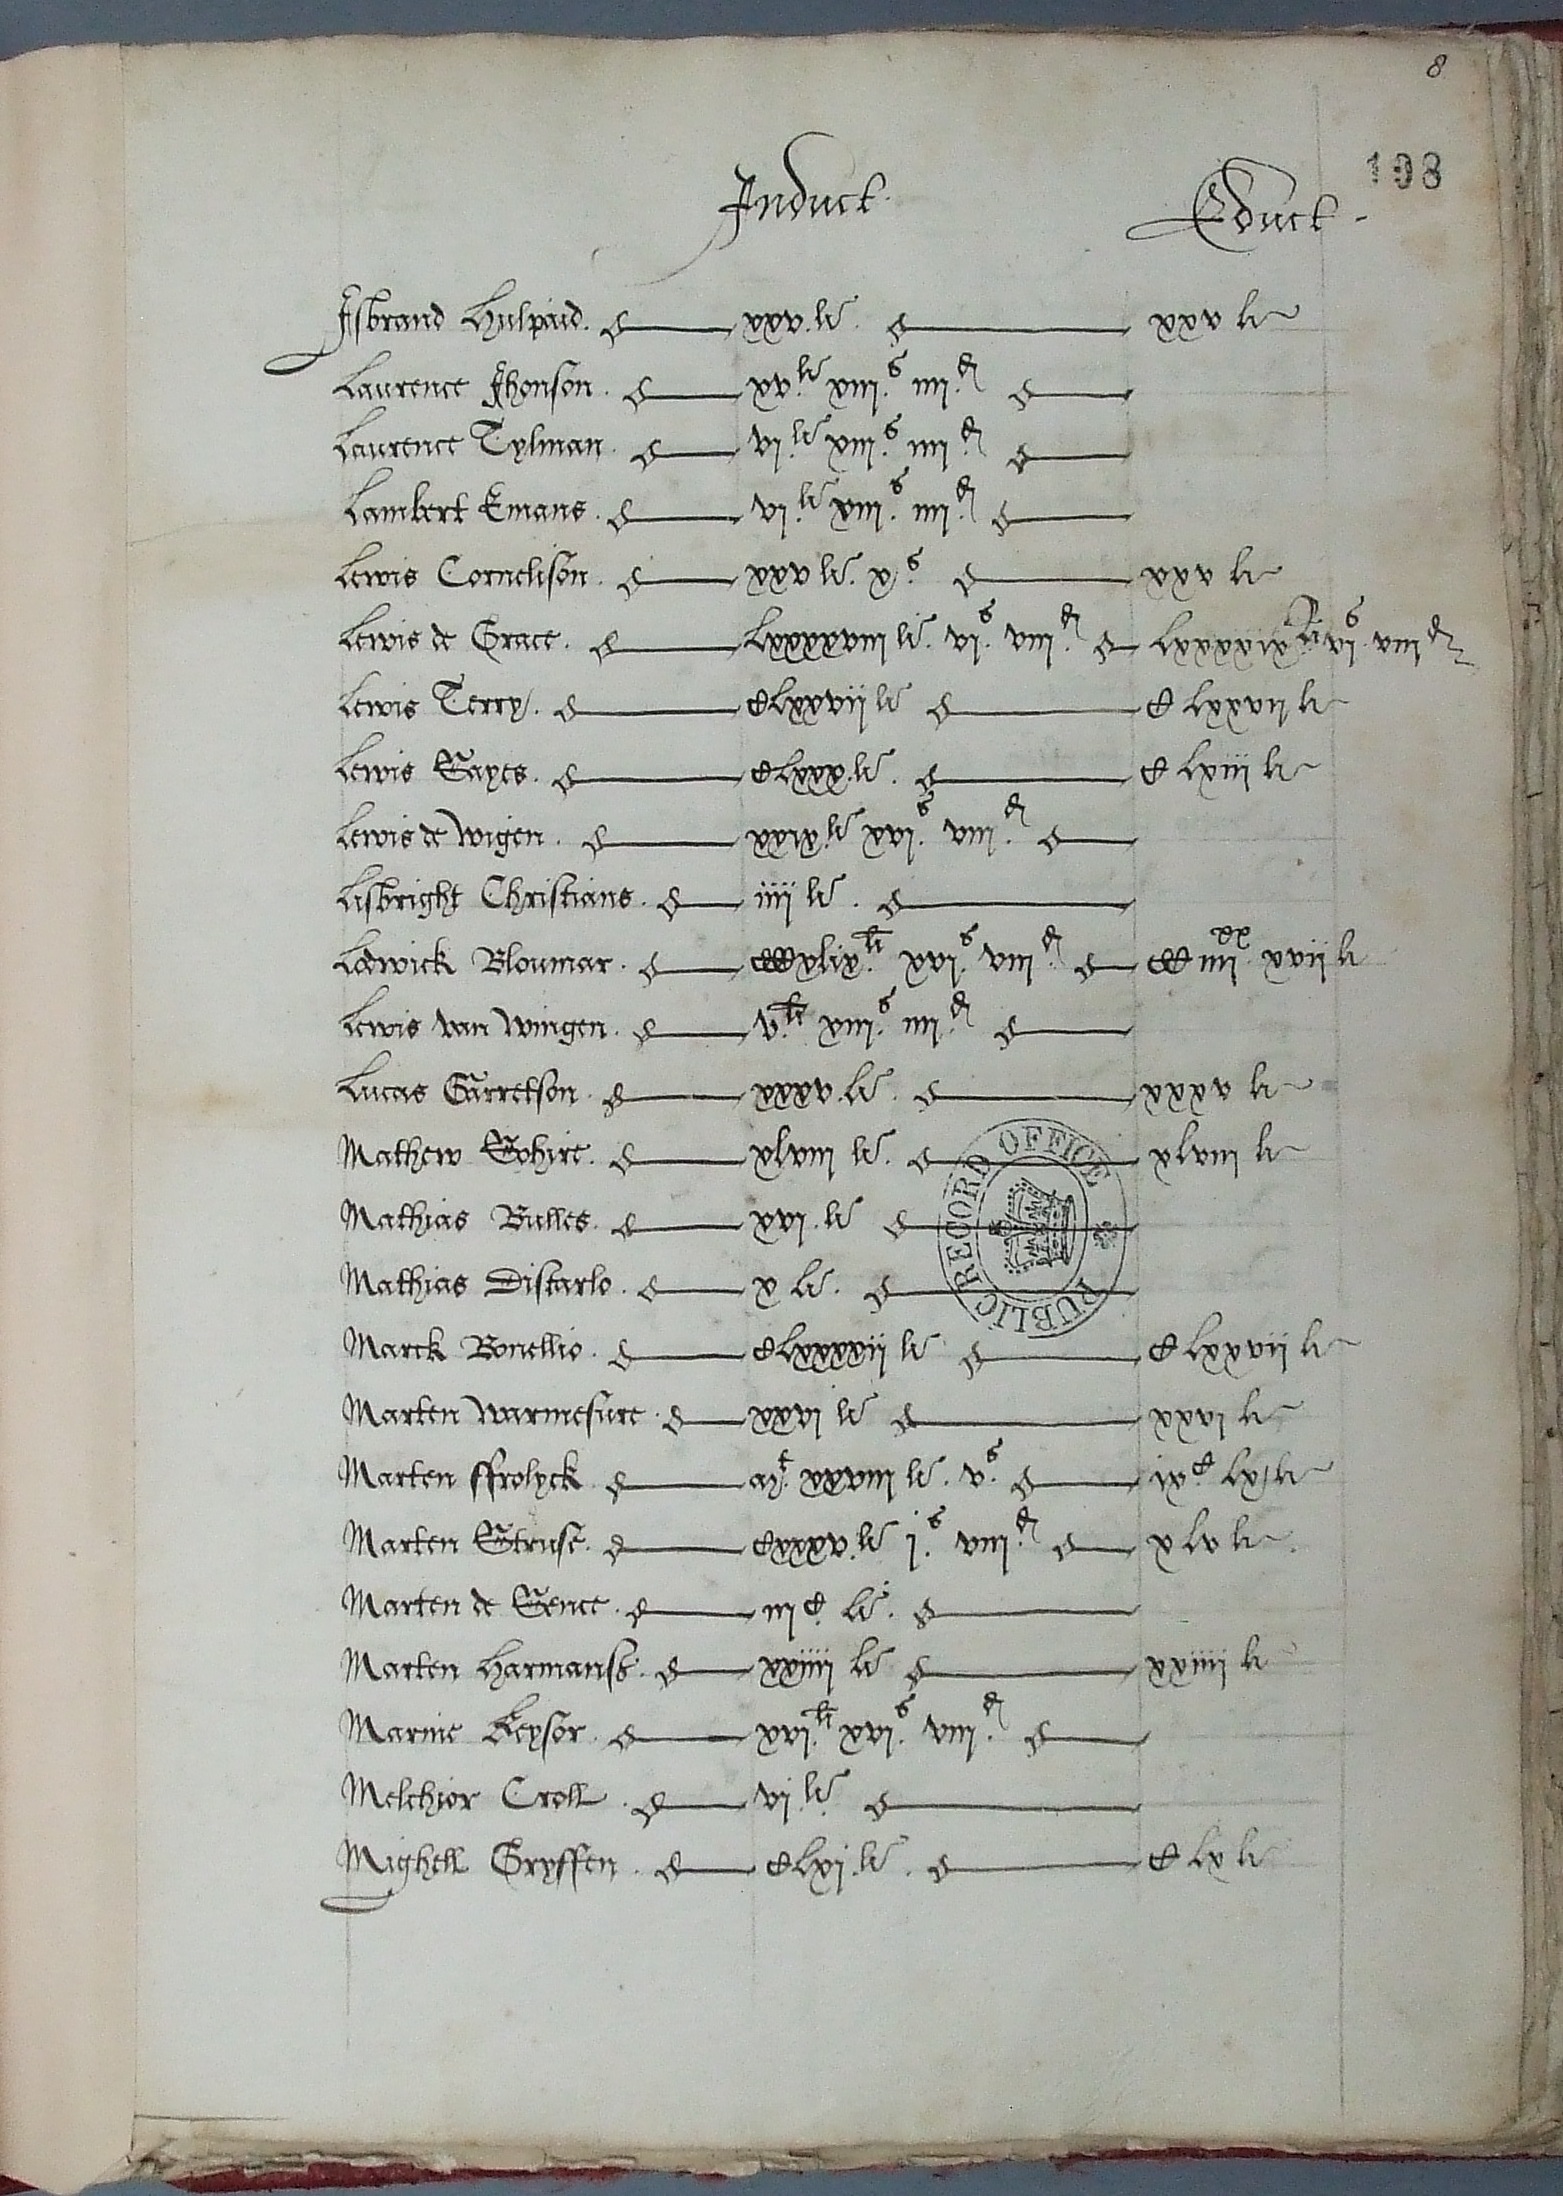 8
108
Induct. Educt.
Isbrand Hulpaid. xxv. li. xxv li
Laurence Jhonson. xv. li xiii. s iiii. d
Laurence Tylman. vi. li xiii. s iiii. d
Lambert Emans. vi. li xiii. s iiii. d
Lewis Cornelison. xxv li. x. s xxv li
Lewis de Grace. Lxxxxviii li. vi. s viii. d Lxxxxix li vi s viii d
Lewis Terry. CLxxvii li C Lxxvii li
Lewis Sayes. CLxxx. li. C Lxiii li
Lewis de Wigen. xxix. li xvi. s viii. d
Lisbright Christians. iiii li.
Lodwick Bloumar. CCCxlix. li xvi. s viii. d CCC iiii xx xvii li
Lewis van Wingen. v. li xiii. s iiii. d
Lucas Garretson. xxxv. li. xxxv li
Mathew Sohire. xlviii li. xlviii li
Mathias Bulles. xvi. li
Mathias Distarlo. x li.
Marck Bonellio. CLxxxxvii li C Lxxvii li
Marten Warmesure. xxvi li xxvi li
Marten ffrolyck. xxviii li. v. s ix. C Lxj li
Marten Struse. Cxxxv. li j. s viii. d xlv li.
Marten de Gence. iii C. li.
Marten Harmans. xxiiii li xxiiii li
Marine Keysor. xvi. li xvi. s viii. d
Melchior Croll. vi. li.
Mighell Gryffen. CLxj. li. C Lx li
PUBLIC RECORD OFFICE